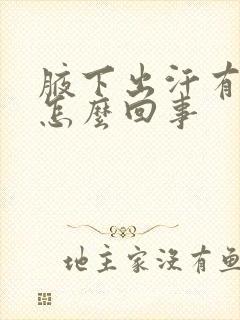 腋下出汗有
怎麼回事
地主家沒有魚